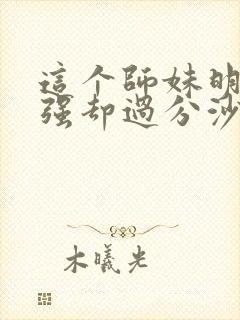 這个師妹明
强却過分沙
木曦光